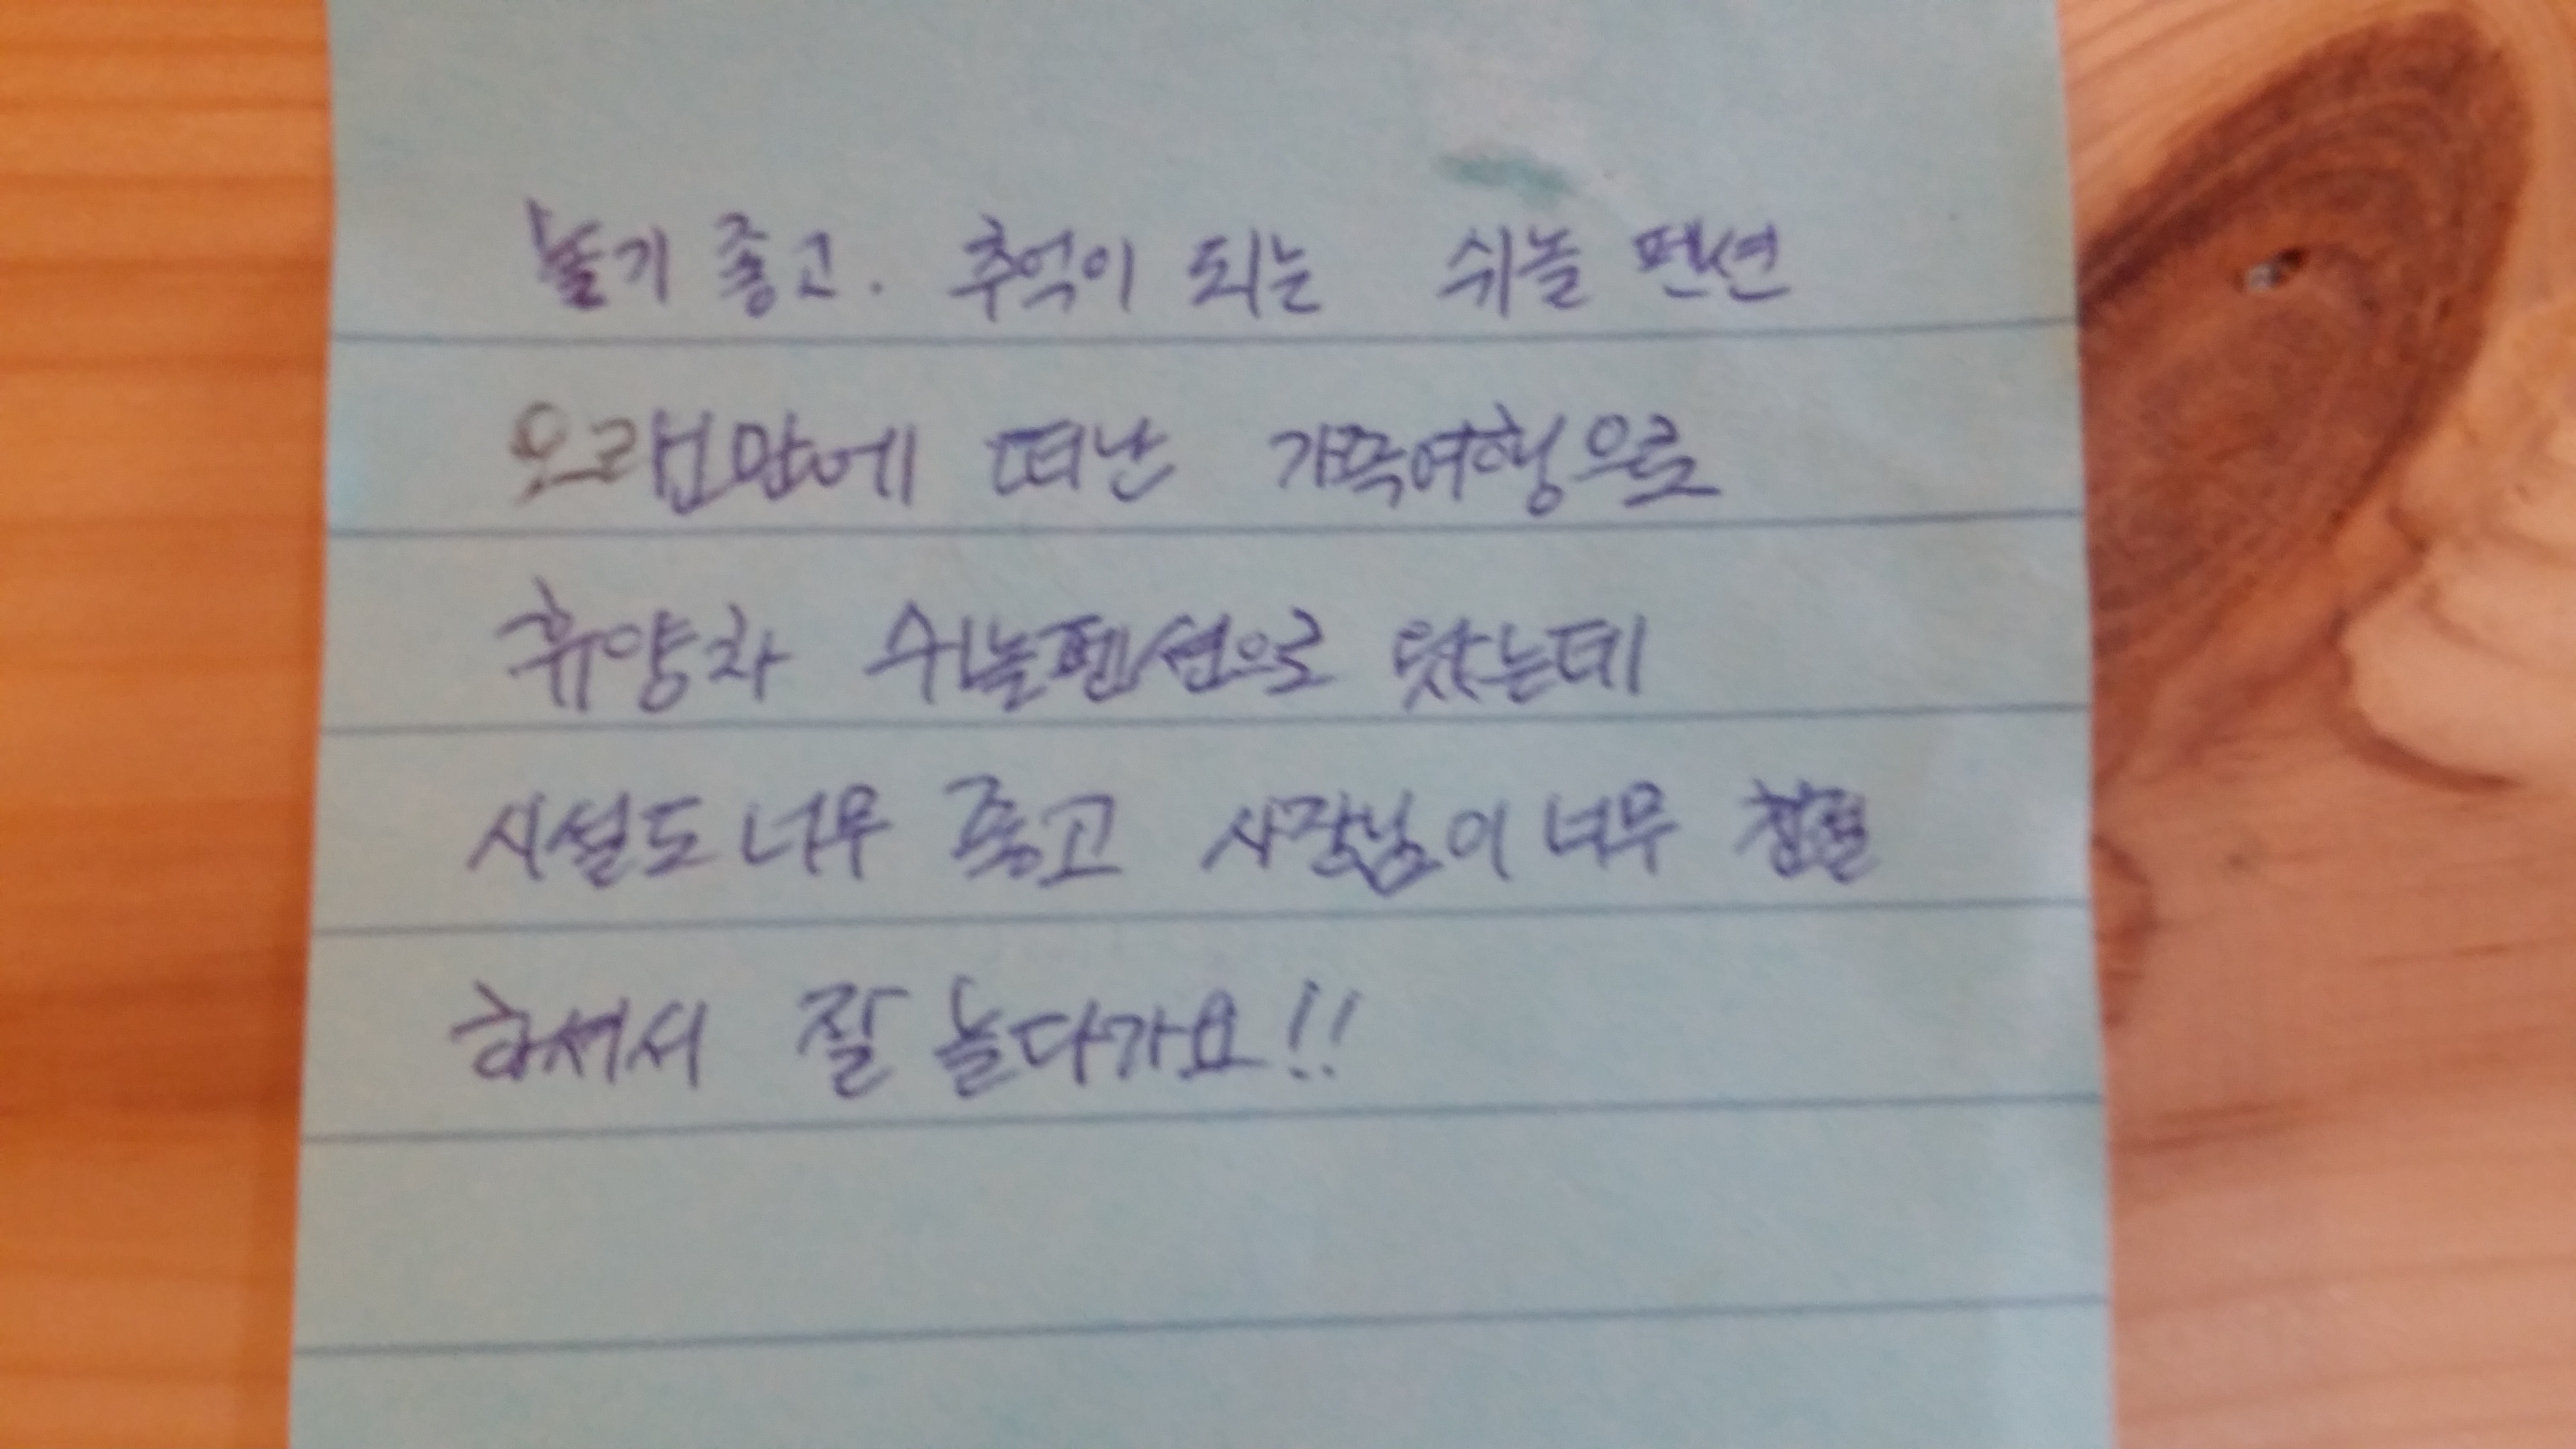 놀기 좋고. 추억이 되는 쉬놀 펜션
오크밸만에 떠난 가족여행으로
휴양차 쉬놀펜션으로 왔는데
시설도 너무 좋고 사장님이 너무 친절
하셔서 잘 놀다가요!!